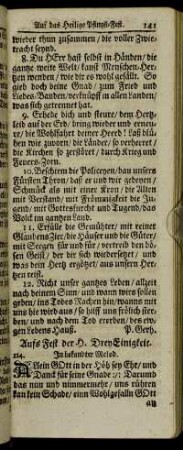 Auf das Heilige Pfingst-Fest. 141
wieder thun zusammen, die voller Zwie-
tracht seynd.
8. Du HErr hast selbst in Händen, die
gantze weite Welt, kanst Menschen-Her-
tzen wenden, wie dir es wohl gefällt. So
gieb doch deine Gnad, zum Fried und
Liebes-Banden, verknüpff in allen Landen,
was sich getrennet hat.
9. Erhebe dich und steure, dem Hertz-
leid auf der Erd, bring wieder und erneu-
re, die Wohlfahrt deiner Heerd! Laß blü-
hen wie zuvorn, die Länder, so verheeret,
die Kirchen so zerstöret, durch Krieg und
Feuers-Zorn.
10. Beschirm die Policeyen, bau unsers
Fürsten Thron, daß er und wir gedeyen,
Schmück als mit einer Kron, die Alten
mit Verstand, mit Frömmigkeit die Ju-
gend, mit Gottesfurcht und Tugend, das
Volck im gantzen Land.
11. Erfülle die Gemüther, mit reiner
Glaubens-Zier, die Häuser und die Güter,
mit Seegen für und für, vertreib den bösen
Geist, der dir sich wiedersetzet, und
was dein Hertz ergötzet, aus unsern Her-
tzen reist.
12. Richt unser gantzes Leben, allzeit
nach deinem Sinn, und wann wirs sollen
geben, ins Todes Rachen hin, wanns mit
uns hie wird aus, so hilff uns frölich ster-
ben, und nach dem Tod ererben, des ew-
gen Lebens Hauß. P. Gerh.
Aufs Fest der H. DreyEinigkeit.
114. In bekandter Melod.
Allein GOtt in der Höh sey Ehr, und
Danck für seine Gnade :/: Darum
das nun und nimmermehr, uns rühren
kan kein Schade, einn Wohlgefalln GOtt
an